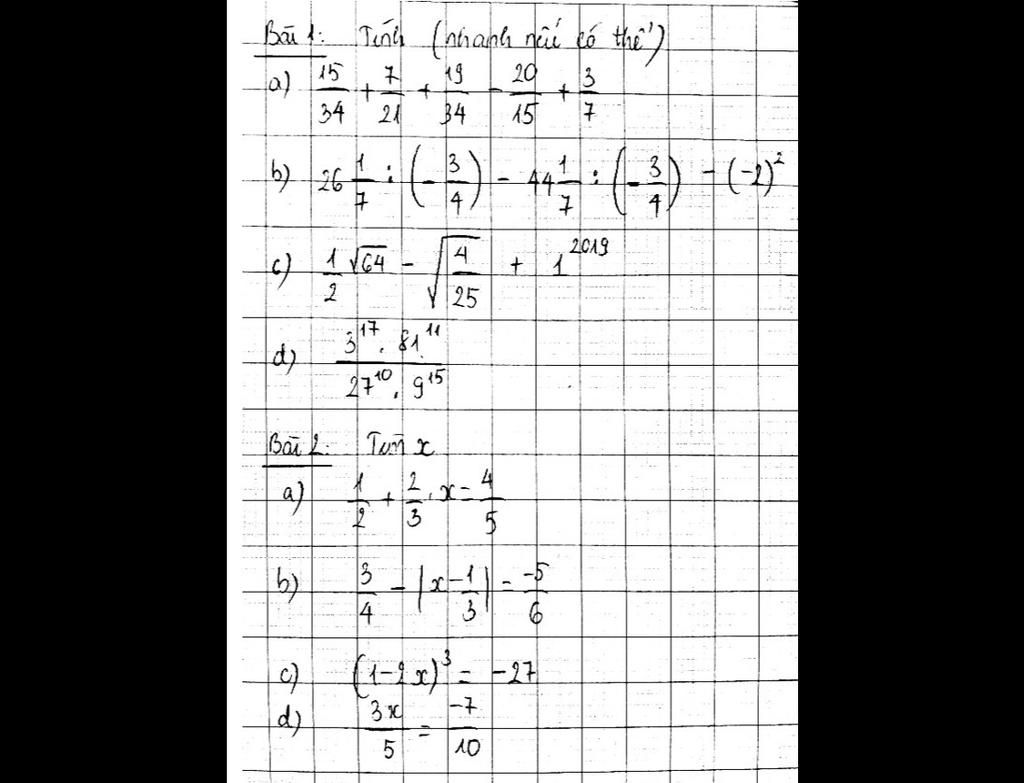 Bài 1: Tính (nhanh nếu có thể)
a) 15/34 + 7/21 + 19/34 - 20/15 + 3/7
b) 26 1/7 : (-3/4) - 44 1/7 : (-3/4) - (-2)²
c) 1/2 √64 - √(4/25) + 1^2019
d) (3^17 . 81^11)/(27^10 . 9^15)
Bài 2: Tìm x
a) 1/2 + 2/3 . x = 4/5
b) 3/4 - |x - 1/3| = -5/6
c) (1-2x)³ = -27
d) 3x/5 = -7/10